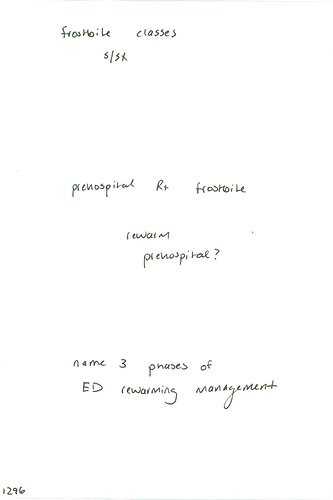 frostbite classes
s/sx
prehospital Rx frostbite
rewarm
prehospital?
name 3 phases of
ED rewarming management
1296